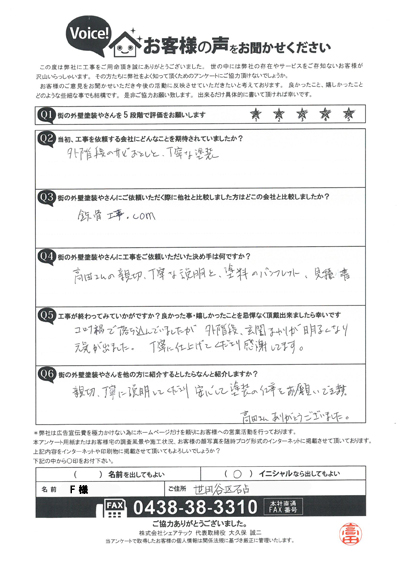 Voice!
お客様の声をお聞かせください
この度は弊社に工事をご用命頂き誠にありがとうございました。世の中には弊社の存在やサービスをご存知ないお客様が
沢山いらっしゃいます。その方たちに弊社をよく知って頂くためのアンケートにご協力頂けないでしょうか。
お客様のご意見をお聞かせいただき今後の活動に反映させていただきたいと考えております。良かったこと、嬉しかったこと
どのような些細な事でも結構です。是非ご協力お願い致します。出来るだけ具体的に書いて頂ければ幸いです。
Q1 街の外壁塗装やさんを5段階で評価をお願いします
Q2 当初、工事を依頼する会社にどんなことを期待されていましたか?
外階段のサビおとしと、丁寧な塗装
Q3 街の外壁塗装やさんにご依頼いただく際に他社と比較しました方はどこの会社と比較しましたか?
鉄骨工事.com
Q4 街の外壁塗装やさんに工事をご依頼いただいた決め手は何ですか?
高田さんの親切、丁寧な説明と、塗料のパンフレット、見積書
Q5 工事が終わってみていかがですか?良かった事・嬉しかったことを忌憚なく頂戴出来ましたら幸いです
コロナ禍で落ち込んでいましたが 外階段、玄関まわりが明るくなり
元気が出ました。丁寧に仕上げてくださり感謝してます。
Q6 街の外壁塗装やさんを他の方に紹介するとしたらなんと紹介しますか?
親切、丁寧に説明してくださり 安心して塗装の仕事をお願いできます
高田さんありがとうございました。
※弊社は広告宣伝費を極力かけない為にホームページだけを頼りにお客様への営業活動を行っております。
本アンケート用紙またはお客様宅の調査風景や施工状況、お客様の顔写真を随時ブログ形式のインターネットに掲載させて頂いております。
上記内容をインターネットや印刷物に掲載させて頂いてもよろしいでしょうか?
下記の中から〇印をお付下さい。
( ) 名前を出してもよい ( ○ ) イニシャルなら出してもよい
名前 F様 ご住所 世田谷区
FAX 0438-38-3310 本社直通 FAX番号
ご協力ありがとうございました。
株式会社シェアテック 代表取締役 大久保 誠二
当アンケートで取得したお客様の個人情報は関係法規に基づき厳正に管理いたします。